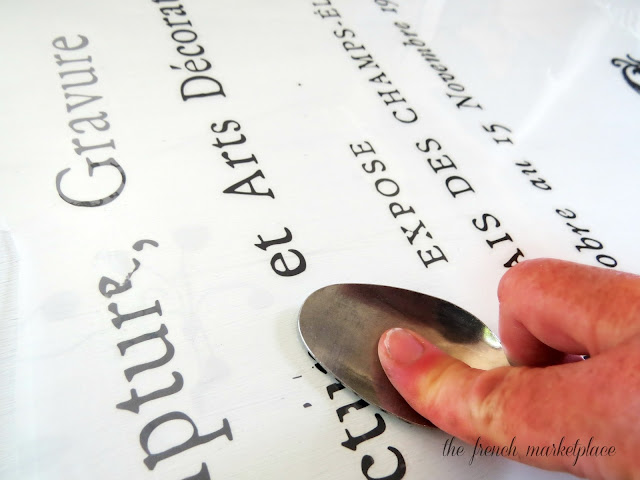 pture, Gravure
ctu et Arts Décora
EXPOSE
AIS DES CHAMPS.ÉL
obre au 15 Novembre 19
the french marketplace